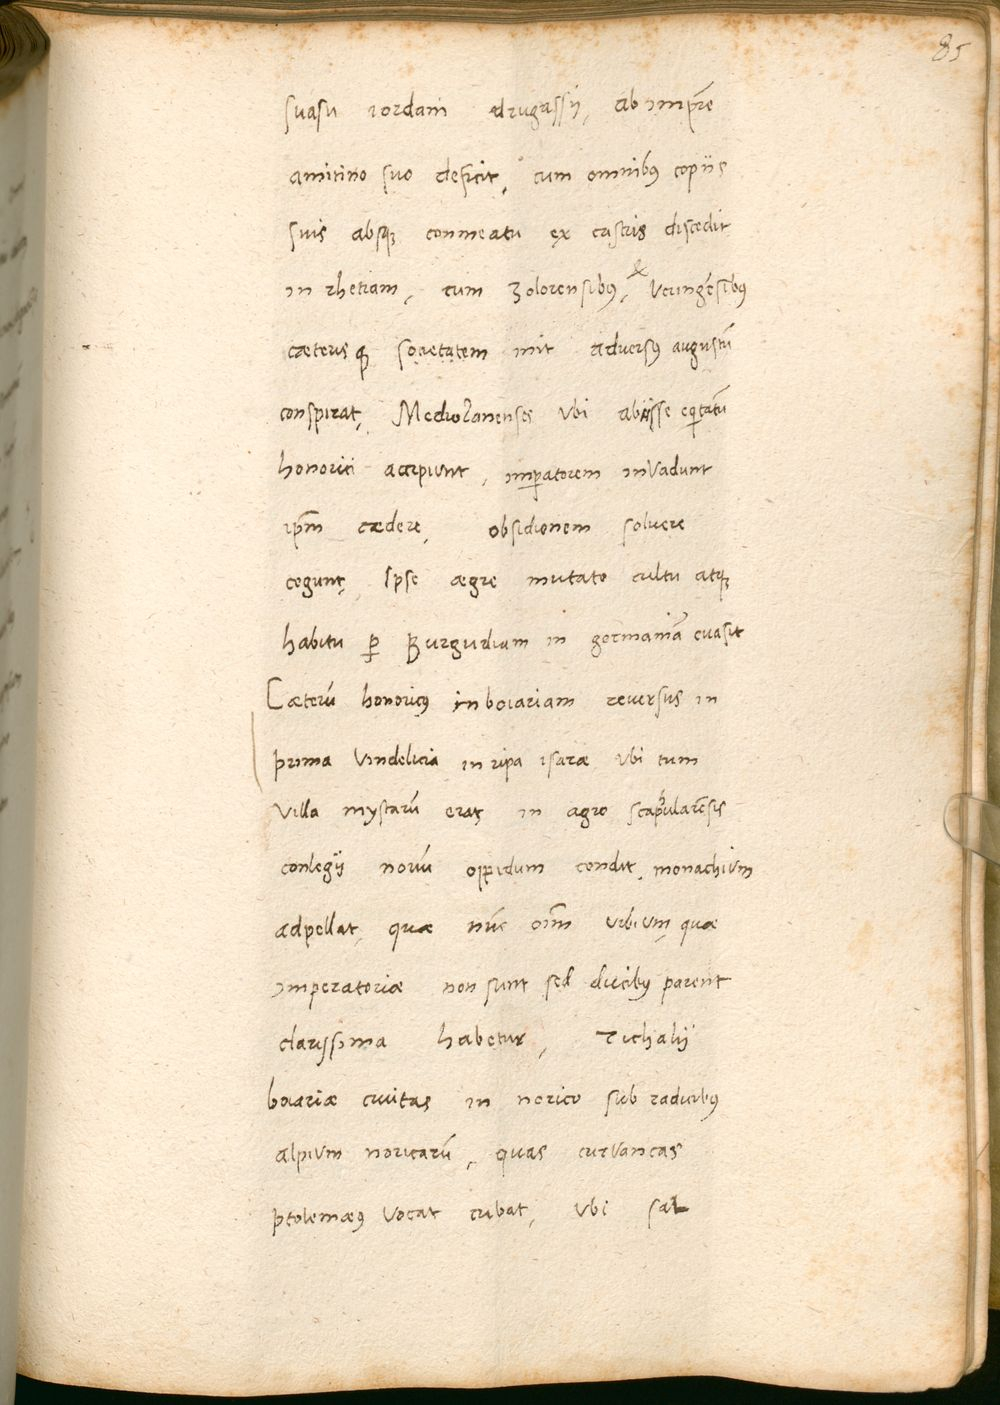 85
suasu iordani drugassij, ab imp̄re
amitino suo deficit, cum omnibꝰ copiis
suis absqꝫ conmeatu ex castris discedit
in rhetiam, cum Zolorensibꝰ, & Veringēsibꝰ
cæterisqꝫ societatem init adversꝰ augustū
conspirat, Mediolanenses Vbi abiisse eqitatū
honorici accipiunt, imꝑatorem inVadunt
ip̄m cædere, obsidionem soluere
cogunt, Ipse ægre mutato cultu atqꝫ
habitu ꝑ Burgundiam in germaniā euasit
Cæterū honoricꝰ in boiariam reuersus in
prima Vindelicia in ripa isaræ Vbi tum
Villa mystarū erat, in agro scapularēsis
conlegij nouū oppidum condit, monachium
adpellat, quæ nūc oīm urbium, quæ
imperatoriæ non sunt sed ducibꝰ parent
clarissima habetur, Tichalij
boiariæ ciuitas in norico sub radicibꝰ
alpium noricarū, quas curuancas
ptolemæꝰ Vocat cubat, Vbi sal